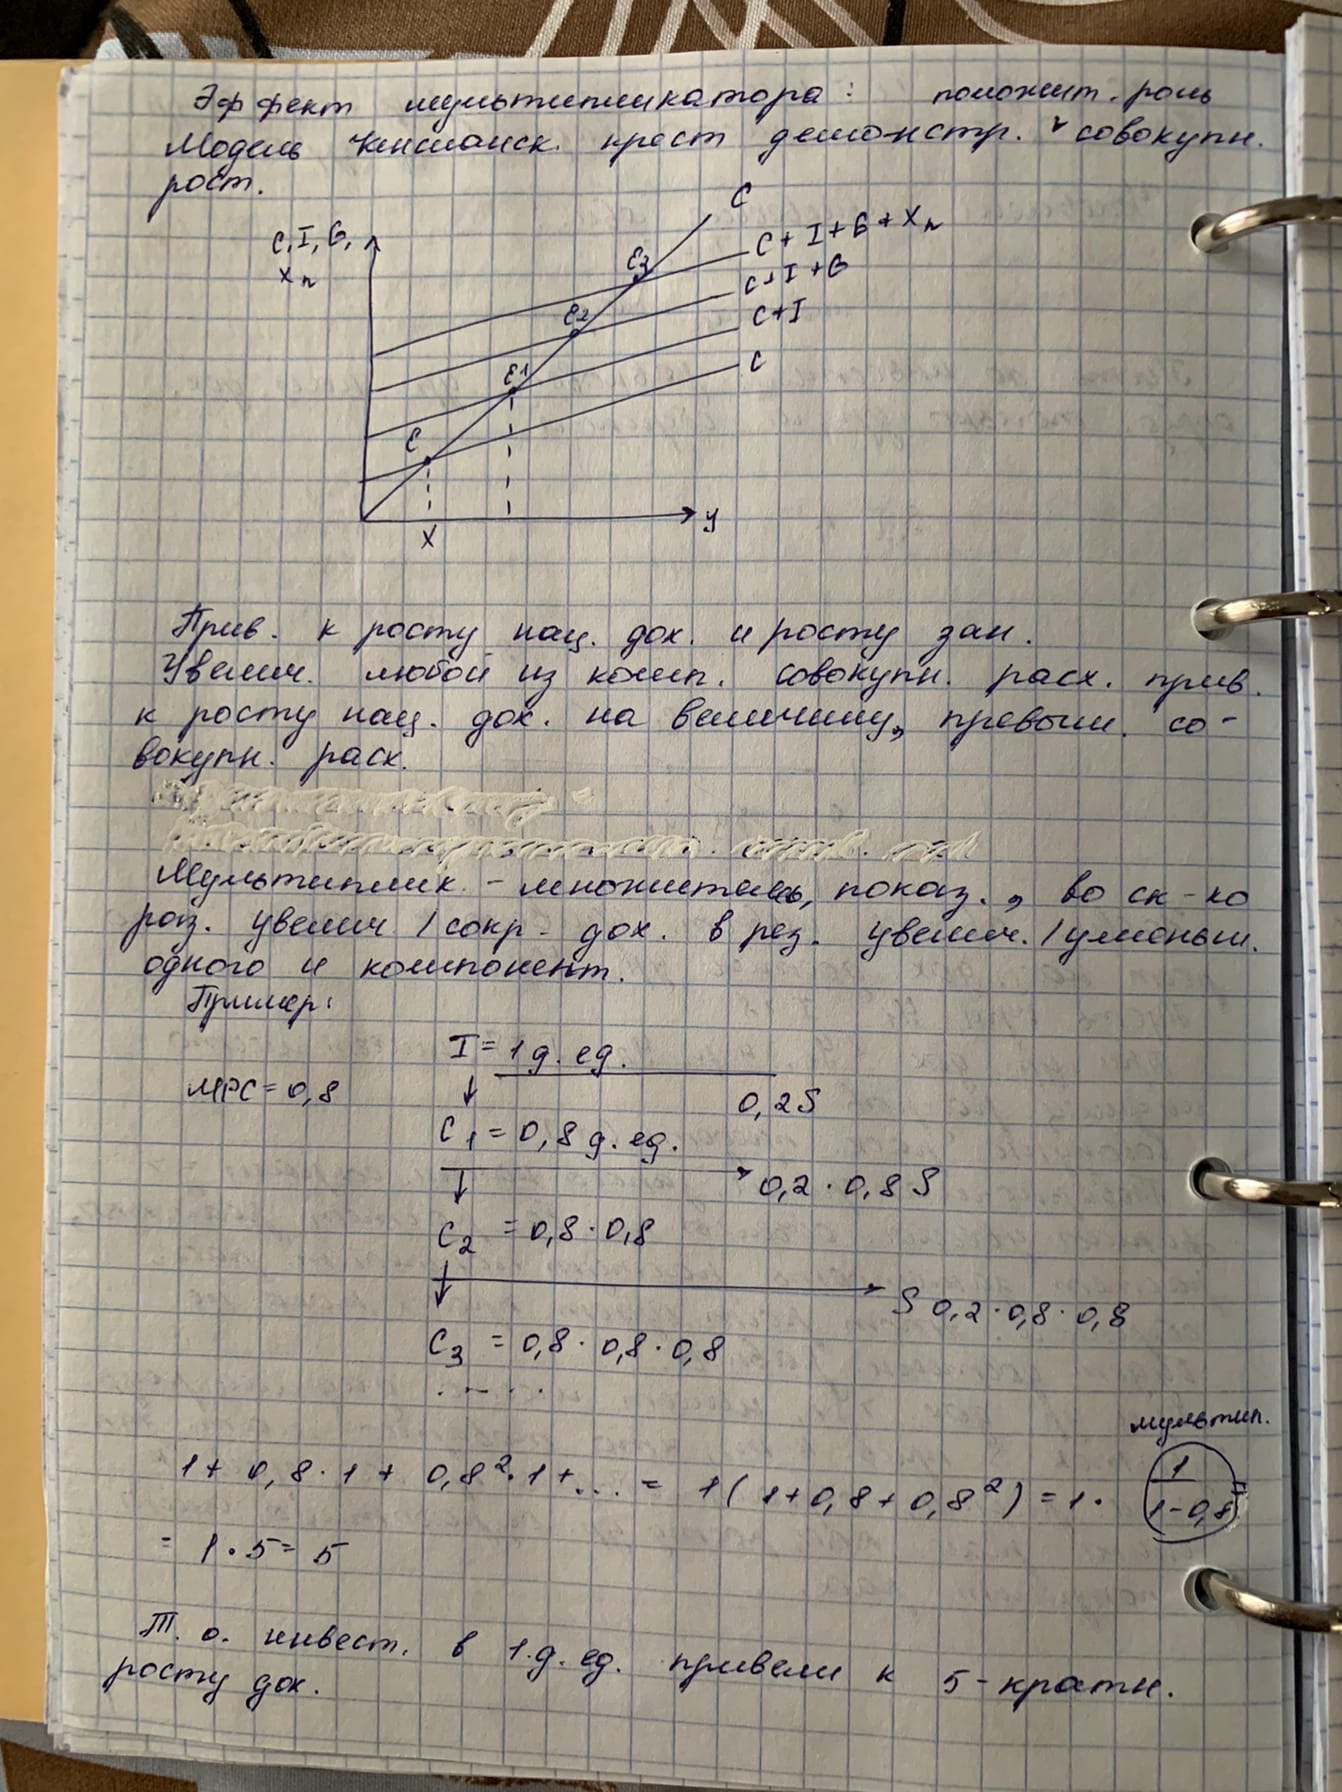 Эффект мультипликатора: положит. роль
Модель Кейнсианск. крест демонстр. ˅ совокупн.
рост.
C
C, I, G,
Xn
E3
C + I + G + Xn
C + I + G
E2
C + I
E1
C
E
X
y
Прив. к росту нац. дох. и росту зан.
Увелич. любой из комп. совокупн. расх. прив.
к росту нац. дох. на величину, превыш. со-
вокупн. расх.
Мультиплик. - множитель, показ., во ск-ко
раз. увелич. / сокр. дох. в рез. увелич. / уменьш.
одного и компонент.
Пример:
I = 1 д. ед.
MPC = 0,8
0,2 S
C1 = 0,8 д. ед.
0,2 · 0,8 S
C2 = 0,8 · 0,8
S 0,2 · 0,8 · 0,8
C3 = 0,8 · 0,8 · 0,8
. . . .
мультип.
1 + 0,8 · 1 + 0,8² · 1 + ... = 1 ( 1 + 0,8 + 0,8² ) = 1 · 1 / 1 - 0,8 =
= 1 · 5 = 5
Т. о. инвест. в 1 д. ед. привели к 5 - кратн.
росту дох.